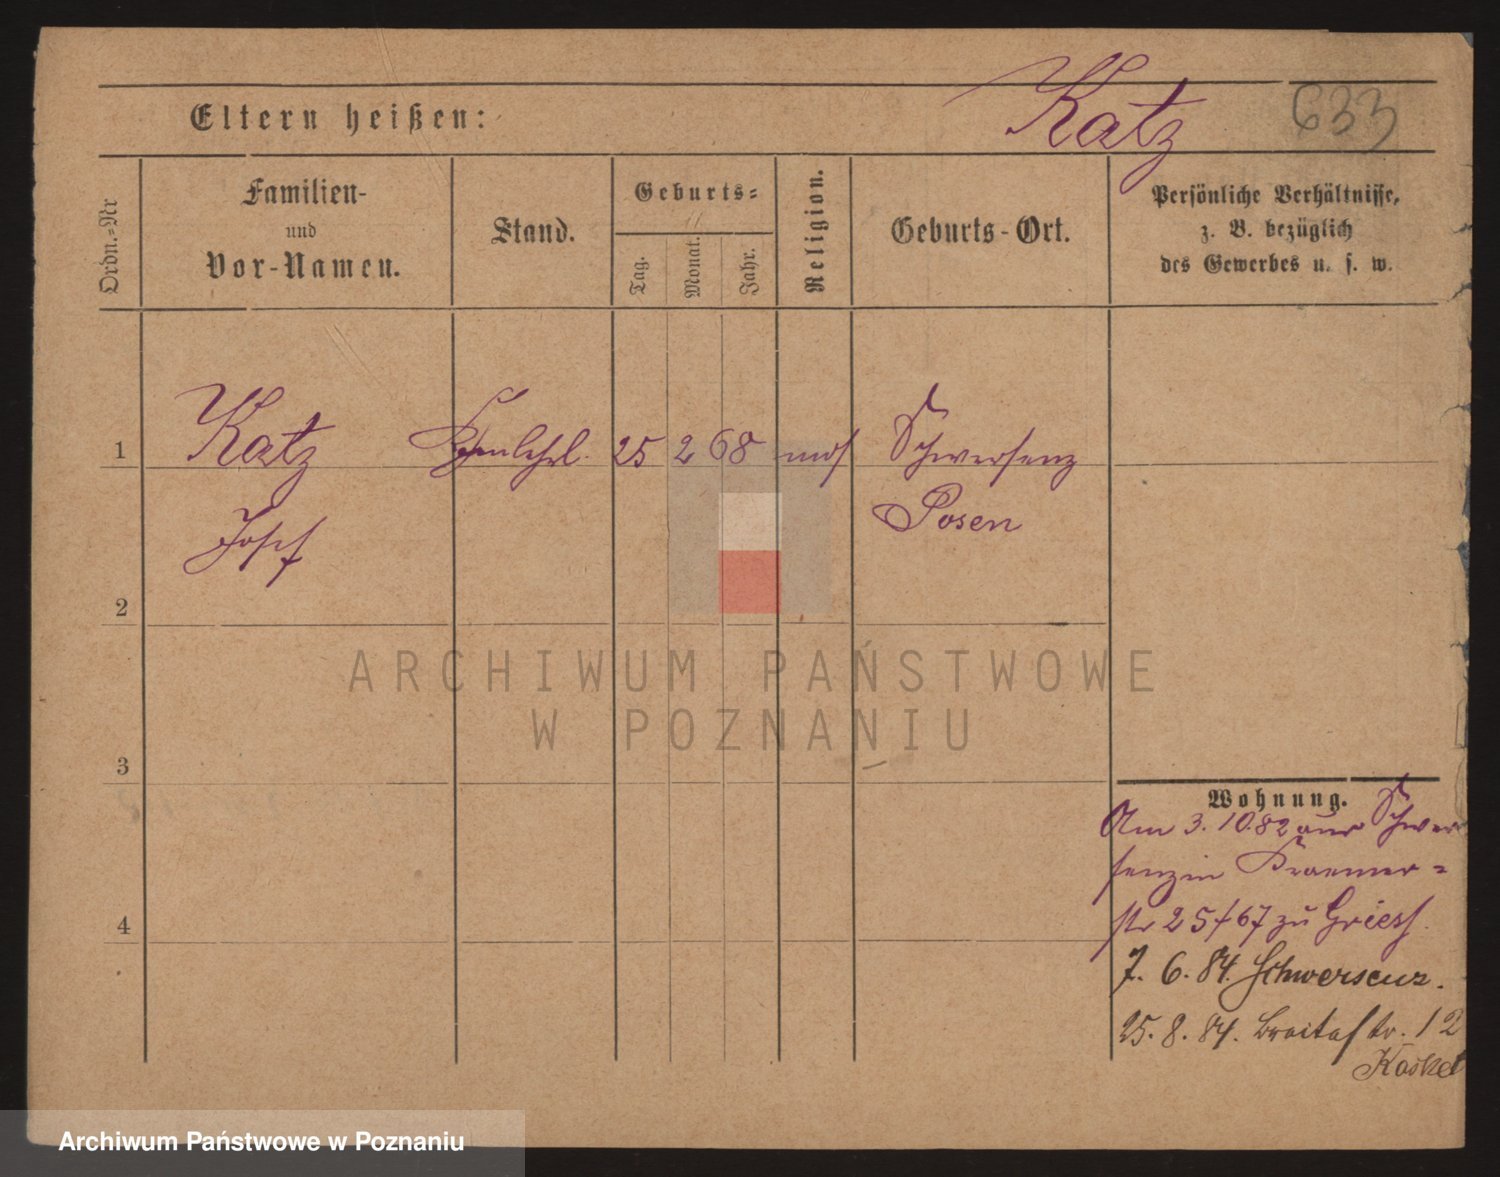 Eltern heißen: Katz 633
Ordn.-Nr
Familien-
und
Vor-Namen.
Stand.
Geburts-
Tag.
Monat.
Jahr.
Religion.
Geburts-Ort.
Persönliche Verhältnisse,
z. B. bezüglich
des Gewerbes u. s. w.
1 Katz 25 2 68 mos Schwersenz
Josef Posen
2
ARCHIWUM PAŃSTWOWE
W POZNANIU
3
Wohnung.
Am 3. 10. 82 aus Schwer
senz in Kraemer=
str 25/67 zu
4
7. 6. 84. Schwersenz.
25. 8. 84. Breitestr. 12
Archiwum Państwowe w Poznaniu